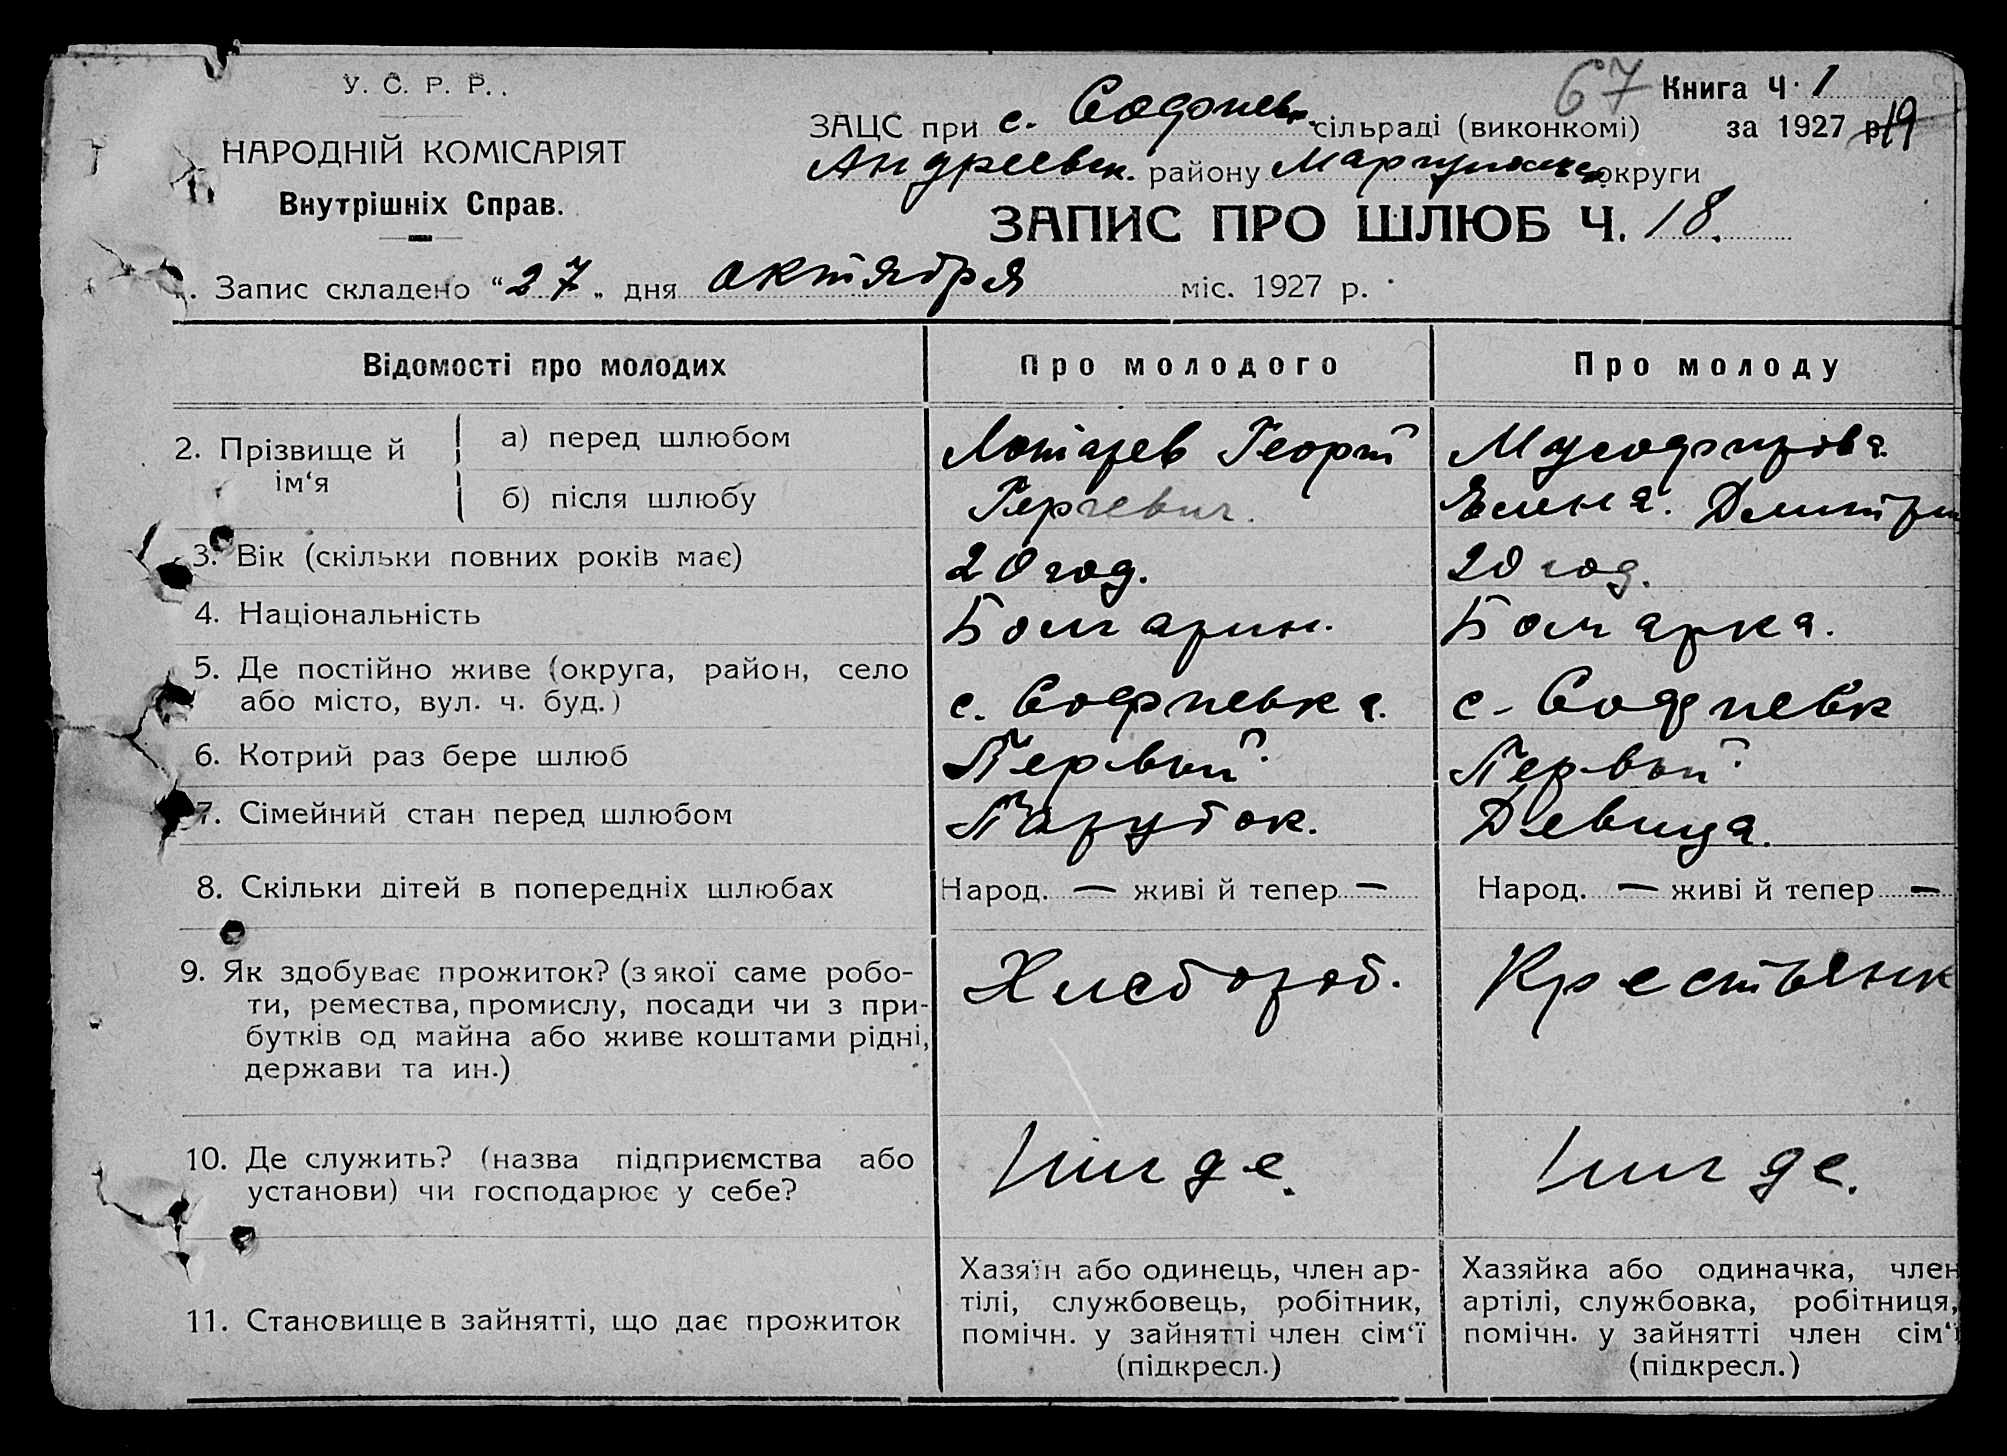 У. С. Р. Р.
НАРОДНІЙ КОМІСАРІЯТ
Внутрішніх Справ.
67 Книга Ч. 1
ЗАЦС при с. Софиев. сільраді (виконкомі) за 1927 р. 19
Андреевск. району Мариупольск. округи
ЗАПИС ПРО ШЛЮБ Ч. 18.
. Запис складено "27" дня октября міс. 1927 р.
Відомості про молодих Про молодого Про молоду
2. Прізвище й ім'я а) перед шлюбом Лотарев Георгий
б) після шлюбу Елена. Дмитри
3. Вік (скільки повних років має) 20 год. 20 год.
4. Національність Болгарин. Болгарка.
5. Де постійно живе (округа, район, село
або місто, вул. ч. буд.) с. Софиевка. с. Софиевк
6. Котрий раз бере шлюб Первый Первый
7. Сімейний стан перед шлюбом Парубок. Девица.
8. Скільки дітей в попередніх шлюбах Народ. — живі й тепер — Народ. — живі й тепер —
9. Як здобуває прожиток? (з якої саме робо-
ти, ремества, промислу, посади чи з при-
бутків од майна або живе коштами рідні,
держави та ин.) Хлебороб. Крестьянк
10. Де служить? (назва підприємства або
установи) чи господарює у себе? Нигде. Нигде.
11. Становище в зайнятті, що дає прожиток
Хазяїн або одинець, член ар-
тілі, службовець, робітник,
помічн. у зайнятті член сім'ї
(підкресл.)
Хазяйка або одиначка, член
артілі, службовка, робітниця,
помічн. у зайнятті член сім'ї
(підкресл.)